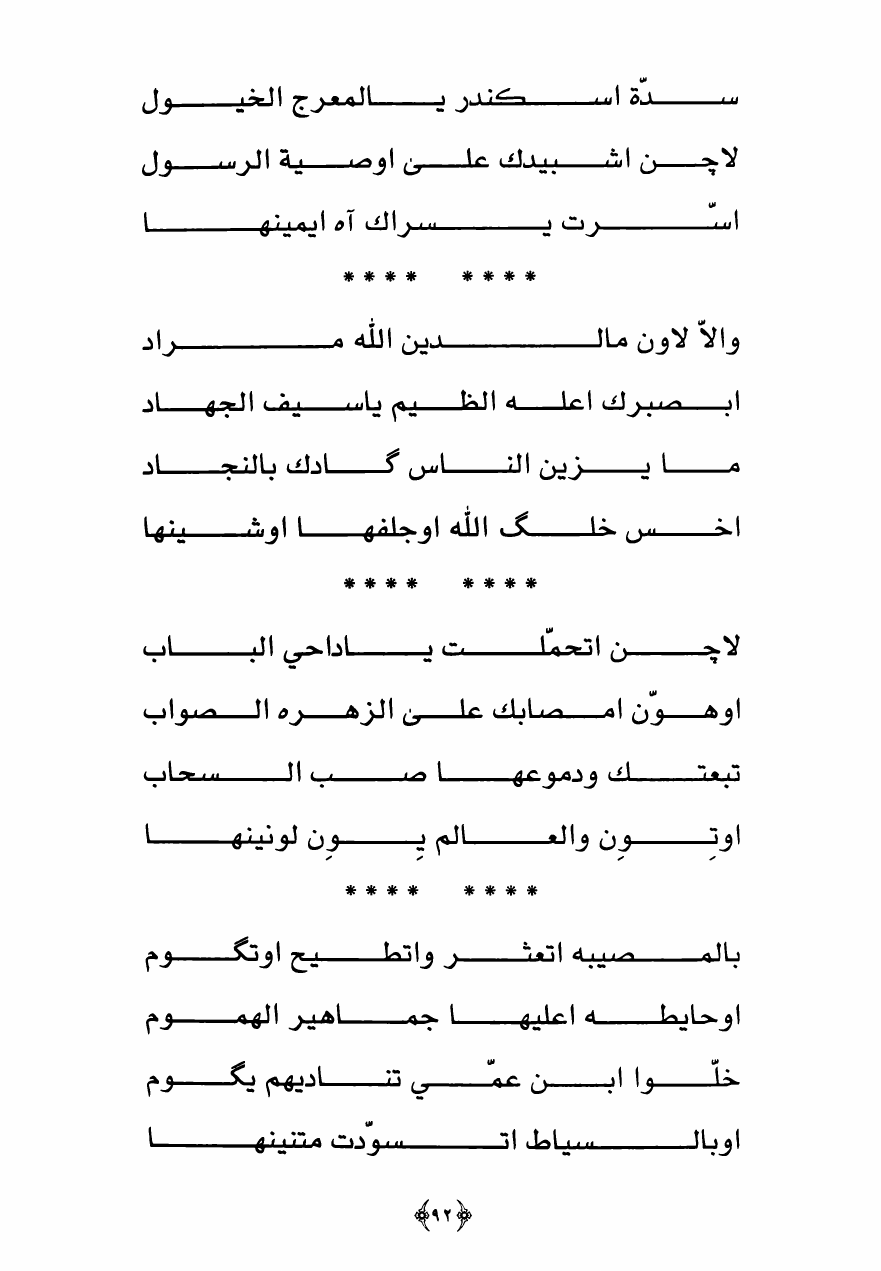 سدّة اسكندر يالمعرج الخيول
لاچن اشبيدك على اوصية الرسول
اسّرت يسراك آه ايمينها
**** ****
والاّ لاون مالدين الله مراد
ابصبرك اعله الظيم ياسيف الجهاد
ما يزين الناس گادك بالنجاد
اخس خلگ الله اوجلفها اوشينها
**** ****
لاچن اتحمّلت ياداحي الباب
اوهوّن امصابك على الزهره الصواب
تبعتك ودموعها صب السحاب
اوتِونِ والعالم يِونِ لونينها
**** ****
بالمصيبه اتعثر واتطيح اوتگوم
اوحايطه اعليها جماهير الهموم
خلّوا ابن عمّي تناديهم يگوم
اوبالسياط اتسودّت متنينها
﴿٩٢﴾